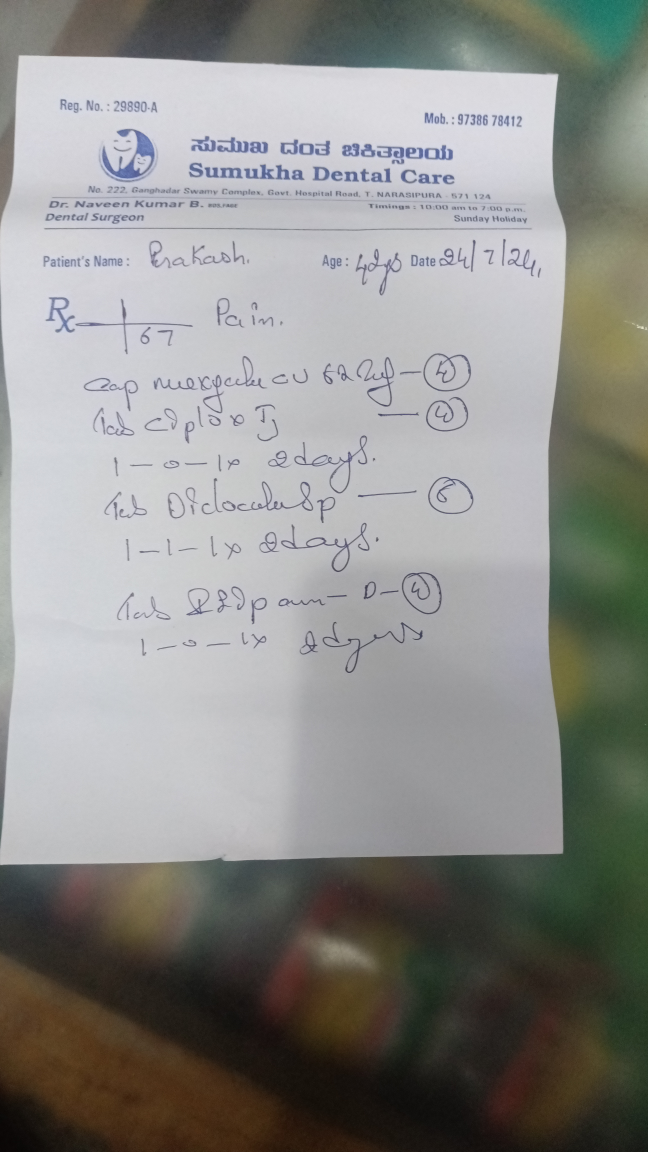 Reg. No. : 29890-A
Mob. : 97386 78412
ಸುಮುಖ ದಂತ ಚಿಕಿತ್ಸಾಲಯ
Sumukha Dental Care
No. 222, Ganghadar Swamy Complex, Govt. Hospital Road, T. NARASIPURA - 571 124
Dr. Naveen Kumar B. BDS,FAGE
Timings : 10:00 am to 7:00 p.m.
Dental Surgeon
Sunday Holiday
Patient's Name : Prakash. Age : Date 24/7/24,
Rx 67 Pain.
Cap cv 625 4
Tab TZ 4
1-0-1x 2days.
Tab Sp 6
1-1-1x 2days.
Tab D-4
1-0-1x 2days